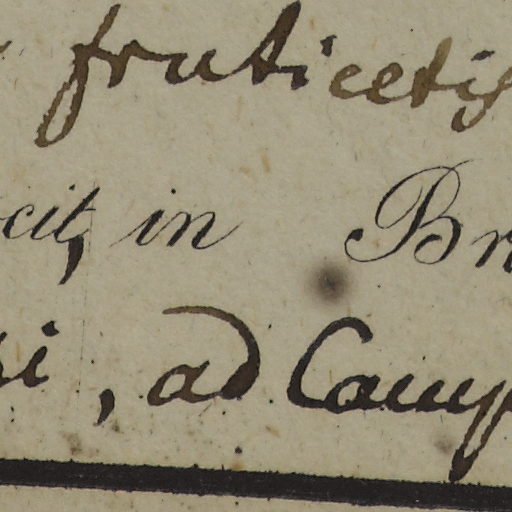 fruticetis
cit, in Br
si, ad Camp